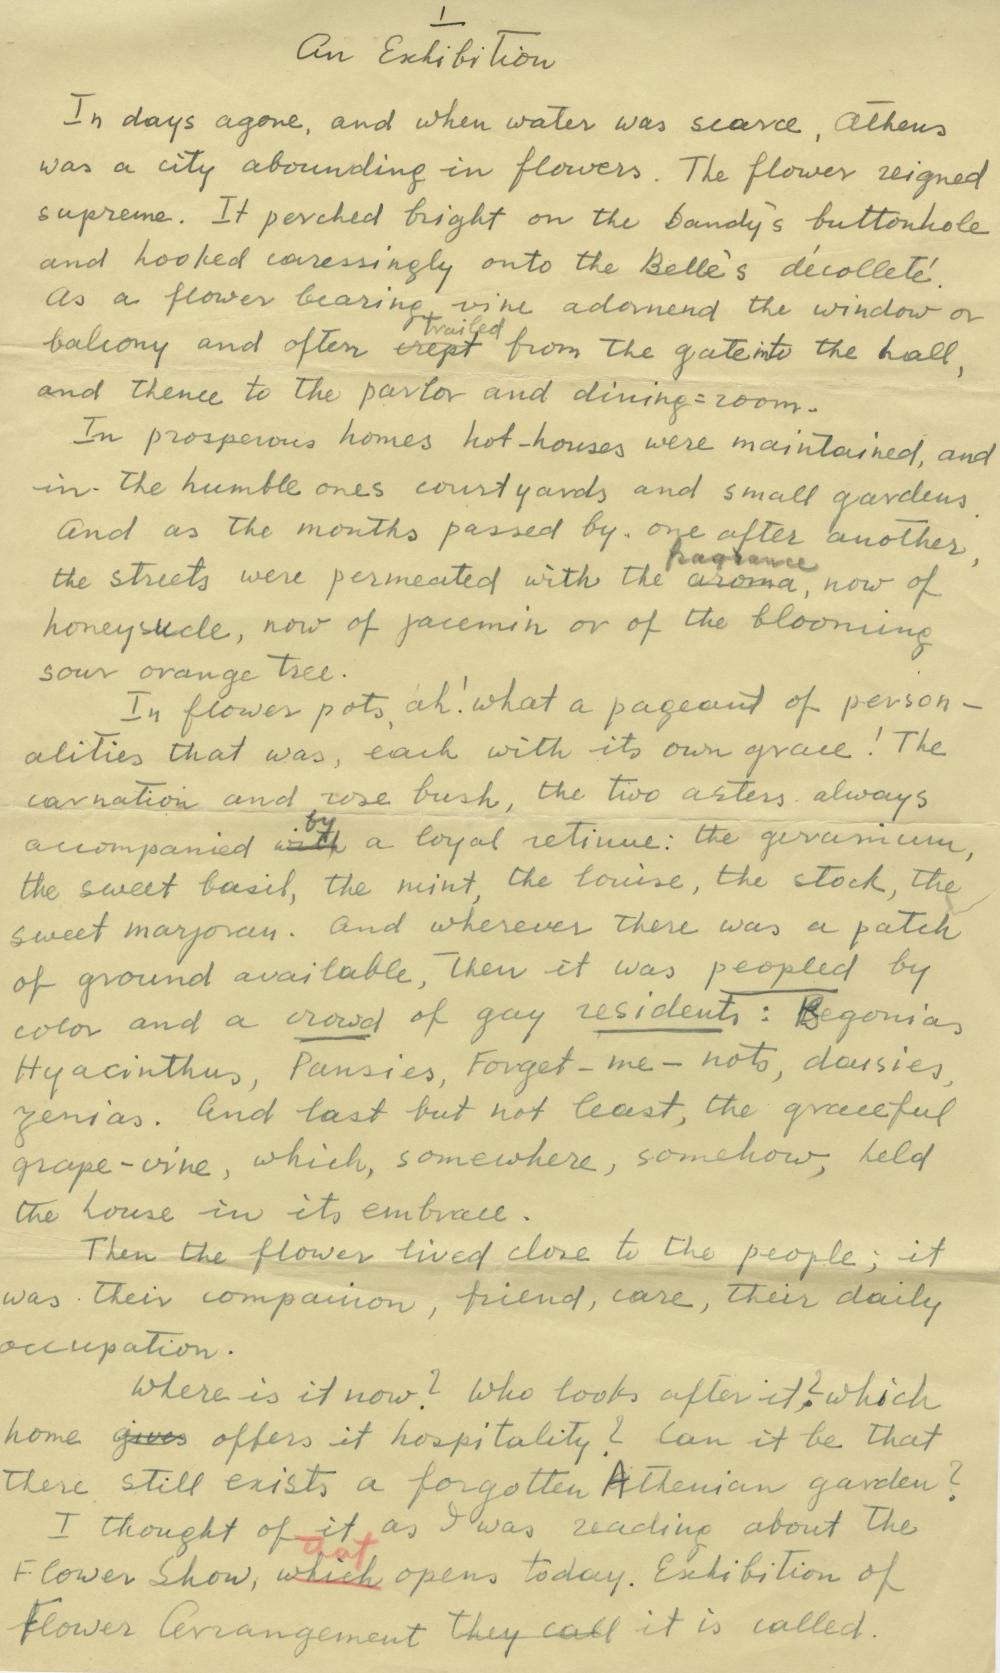 1
An Exhibition
In days agone, and when water was scarce, Athens
was a city abounding in flowers. The flower reigned
supreme. It perched bright on the bandy's buttonhole
and hooked caressingly onto the Belle's décolleté.
As a flower bearing vine adornend the window or
trailed
balcony and often crept from the gate into the hall,
and thence to the parlor and dining=room.
In prosperous homes hot-houses were maintained, and
in the humble ones courtyards and small gardens.
And as the months passed by. one after another,
fragrance
the streets were permeated with the aroma, now of
honeysucle, now of jacemin or of the blooming
sour orange tree.
In flower pots, ah! what a pageant of person-
alities that was, each with its own grace! The
carnation and rose bush, the two asters always
by
accompanied with a loyal retinue: the geranium,
the sweet basil, the mint, the louise, the stock, the
sweet marjoran. And wherever there was a patch
of ground available, then it was peopled by
color and a crowd of gay residents: Begonias
Hyacinthus, Pansies, Forget-me-nots, daisies,
zenias. And last but not least, the graceful
grape-vine, which, somewhere, somehow, held
the house in its embrace.
Then the flower lived close to the people; it
was their compainion, friend, care, their daily
occupation.
Where is it now? Who looks after it? which
home gives offers it hospitality? Can it be that
there still exists a forgotten Athenian garden?
I thought of it as I was reading about the
that
Flower Show, which opens today. Exhibition of
Flower Arrangement they call it is called.